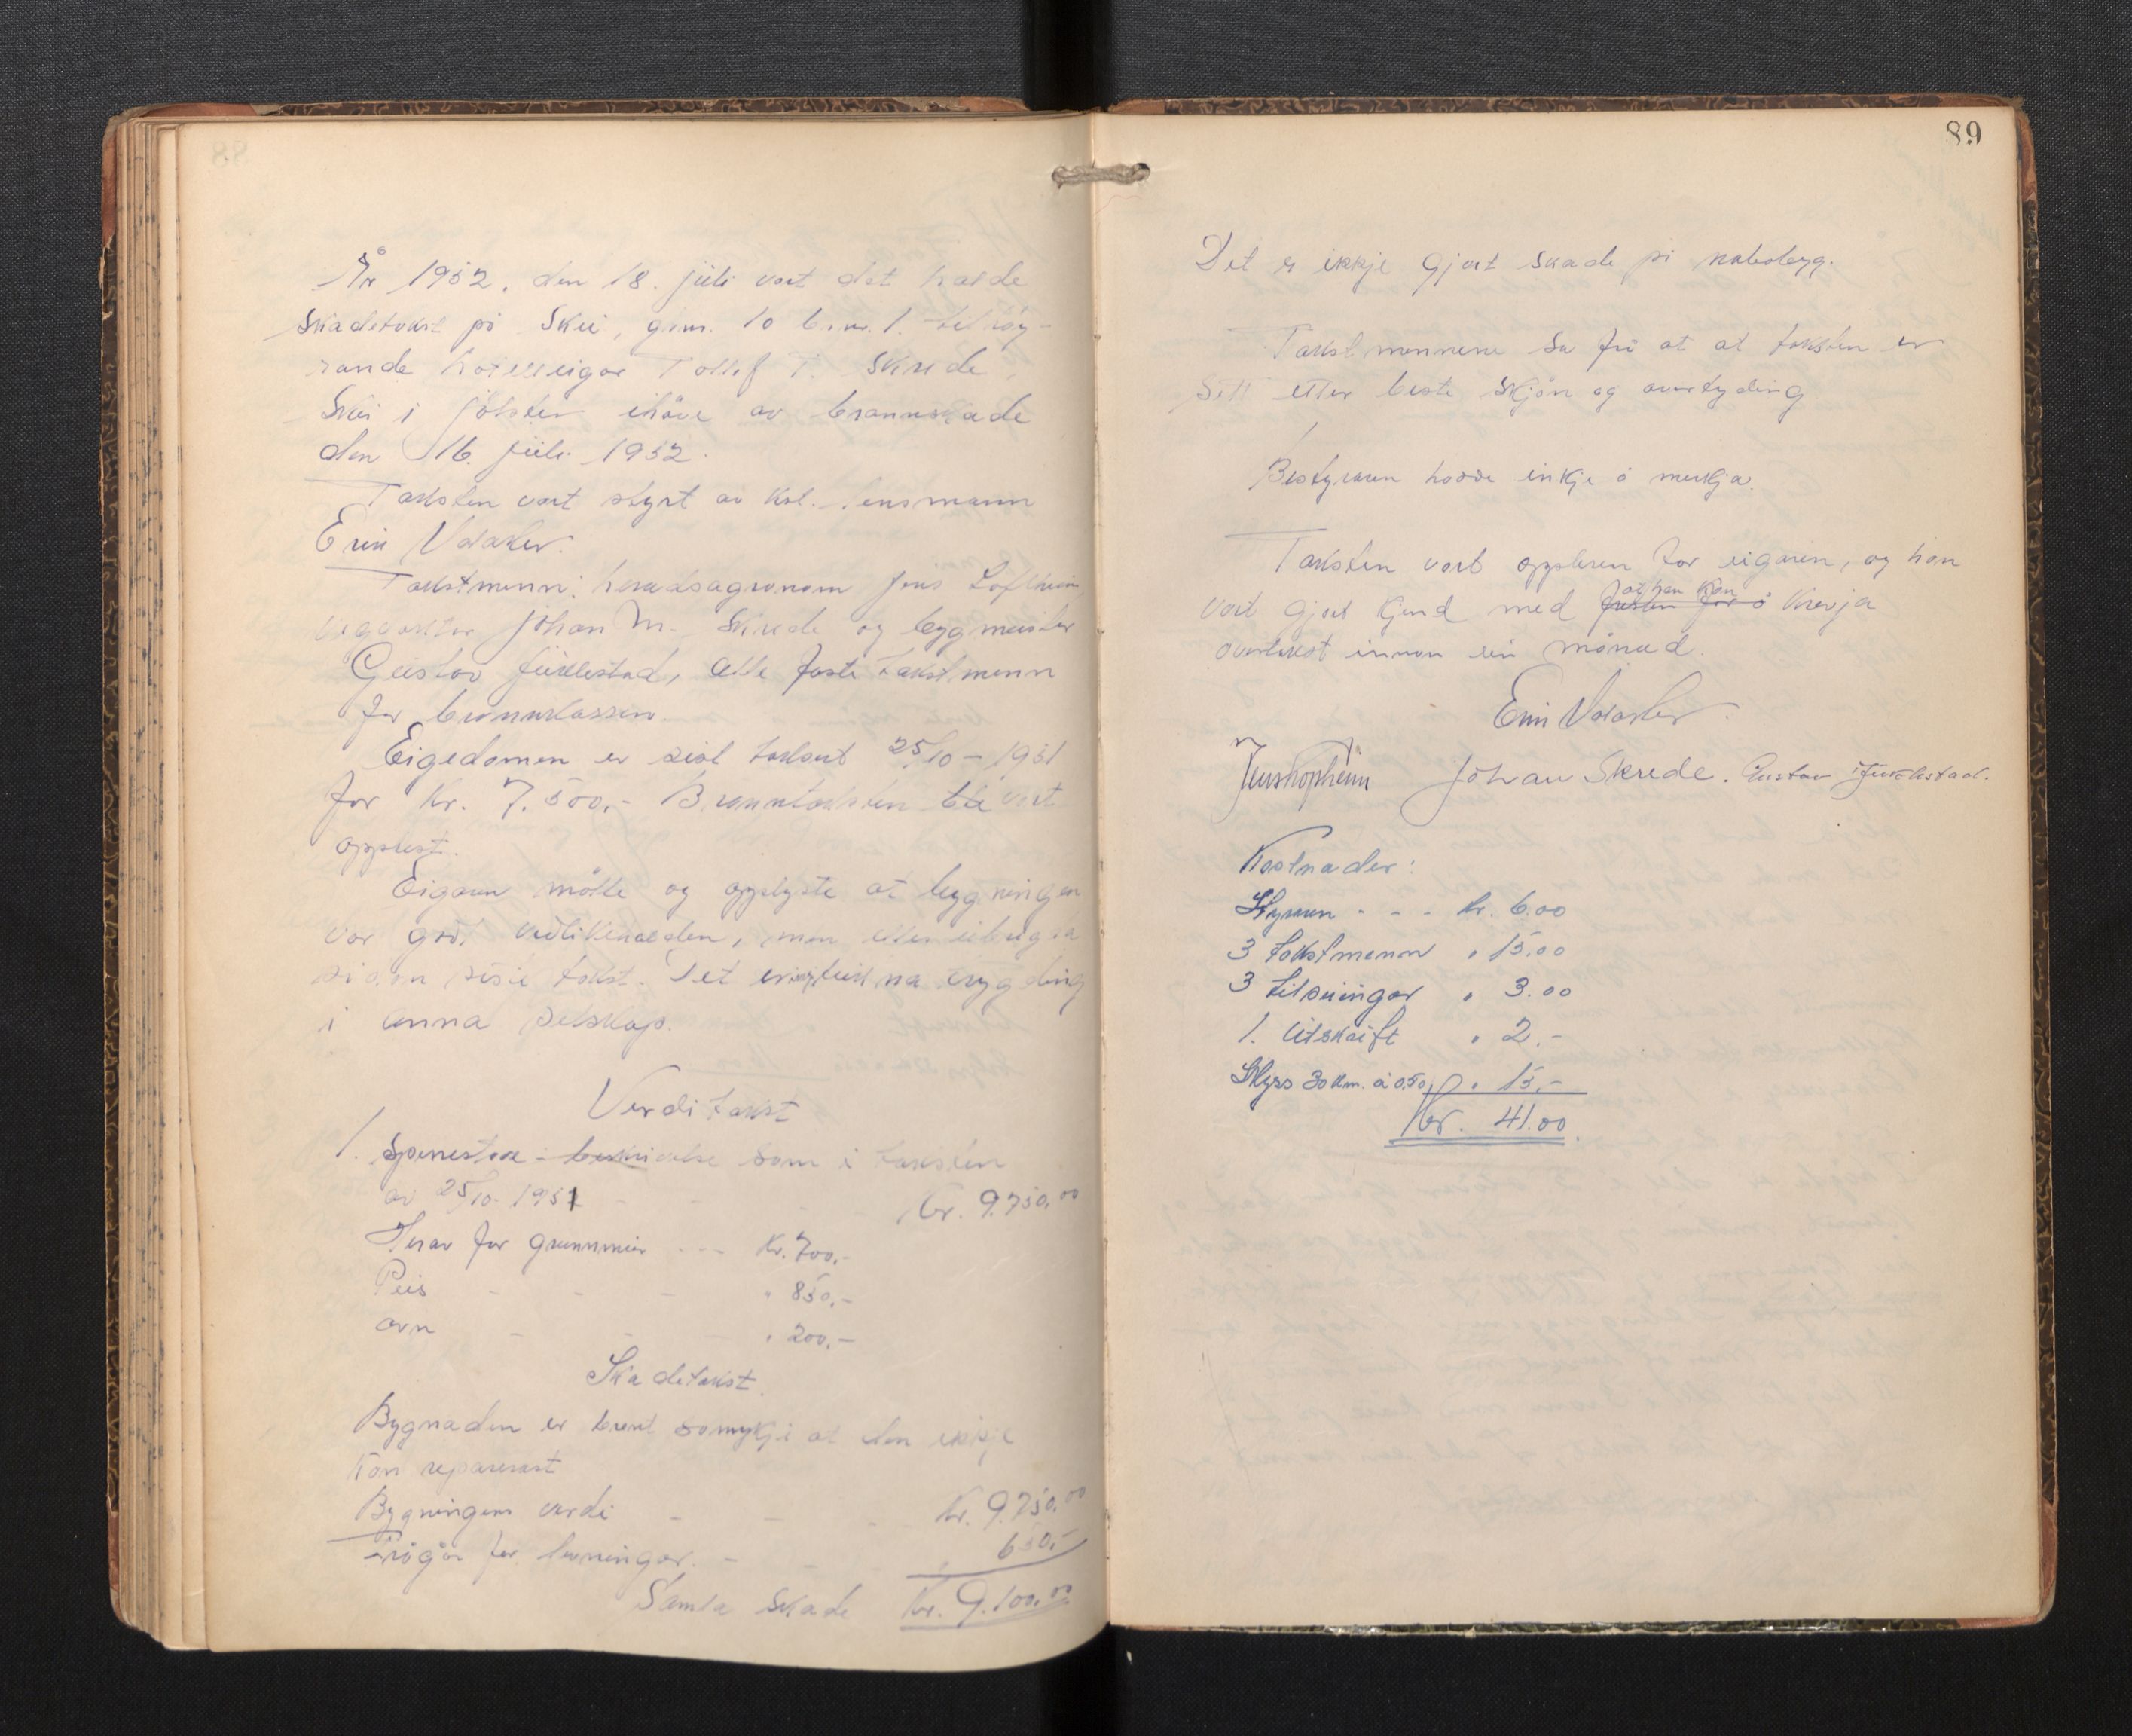 År 1952, den 18. juli vart det halde
skadetakst på Skei, g.nr. 10 b.nr. 1. tilhøy-
rande hotelleigar Tollef T. Skrede,
Skei i Jølster ihøve av brannskade
den 16. juli 1952.
Taksten vart styrt av kst. lensmann
Erik Valaker.
Takstmenn: heradsagronom Jens Loftheim,
vegvaktar Johan M. Skrede og bygmeister
Gustav Fuxlestad, alle faste takstmenn
for brannkassen.
Eigedomen er sist taksert 25/10 – 1951
for kr. 7.500,- Branntaksten ble vart
opplest.
Eigaren møtte og opplyste at bygningen
var god vedlikehalden, men
sidan siste takst. Det er trygding
i anna selskap.
Verditakst
1. Sperrestove - beskrivelse som i taksten
av 25/10- 1951 - - - kr. 9.750,00
Herav for grunnmur - - - kr. 700,-
Peis - - - " 850,-
Ovn - - - " 200,-
Skadetakst.
Bygnaden er brent so mykje at den ikkje
kan reparerast
Bygningens verdi - - - kr. 9.750,00
Frågår for levningar. - - 650,-
Samla skade kr. 9.100,00
89
Det er ikkje gjort skade på nabobygg.
Takstmennene sa frå at at taksten er
sett etter beste skjøn og overtyding
Bestyraren hadde inkje å merkja.
Taksten vart opplesen for eigaren, og han
at han kan
vart gjort kjend med fristen for å krevja
overtakst innan ein månad.
Erik Valaker.
Jens Loptheim Johan Skrede. Gustav Fuxlestad.
Kostnader:
Styraren - - - kr. 6.00
3 takstmenn " 15.00
3 tilseiingar " 3.00
1. utskrift " 2.-
Skyss 30 km. à 0,50 " 15,-
kr. 41.00